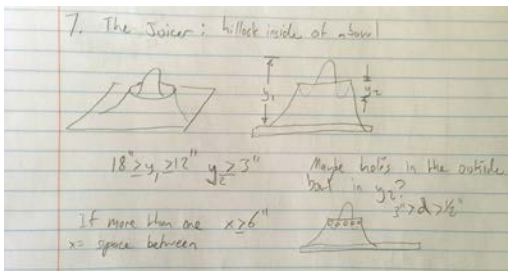 7. The Juicer: hillock inside of a bowl
y₁
y₂
18" ≥ y₁ ≥ 12" y₂ ≥ 3"
Maybe holes in the outside
bowl in y₂?
3" > d > ½"
If more than one x ≥ 6"
x = space between